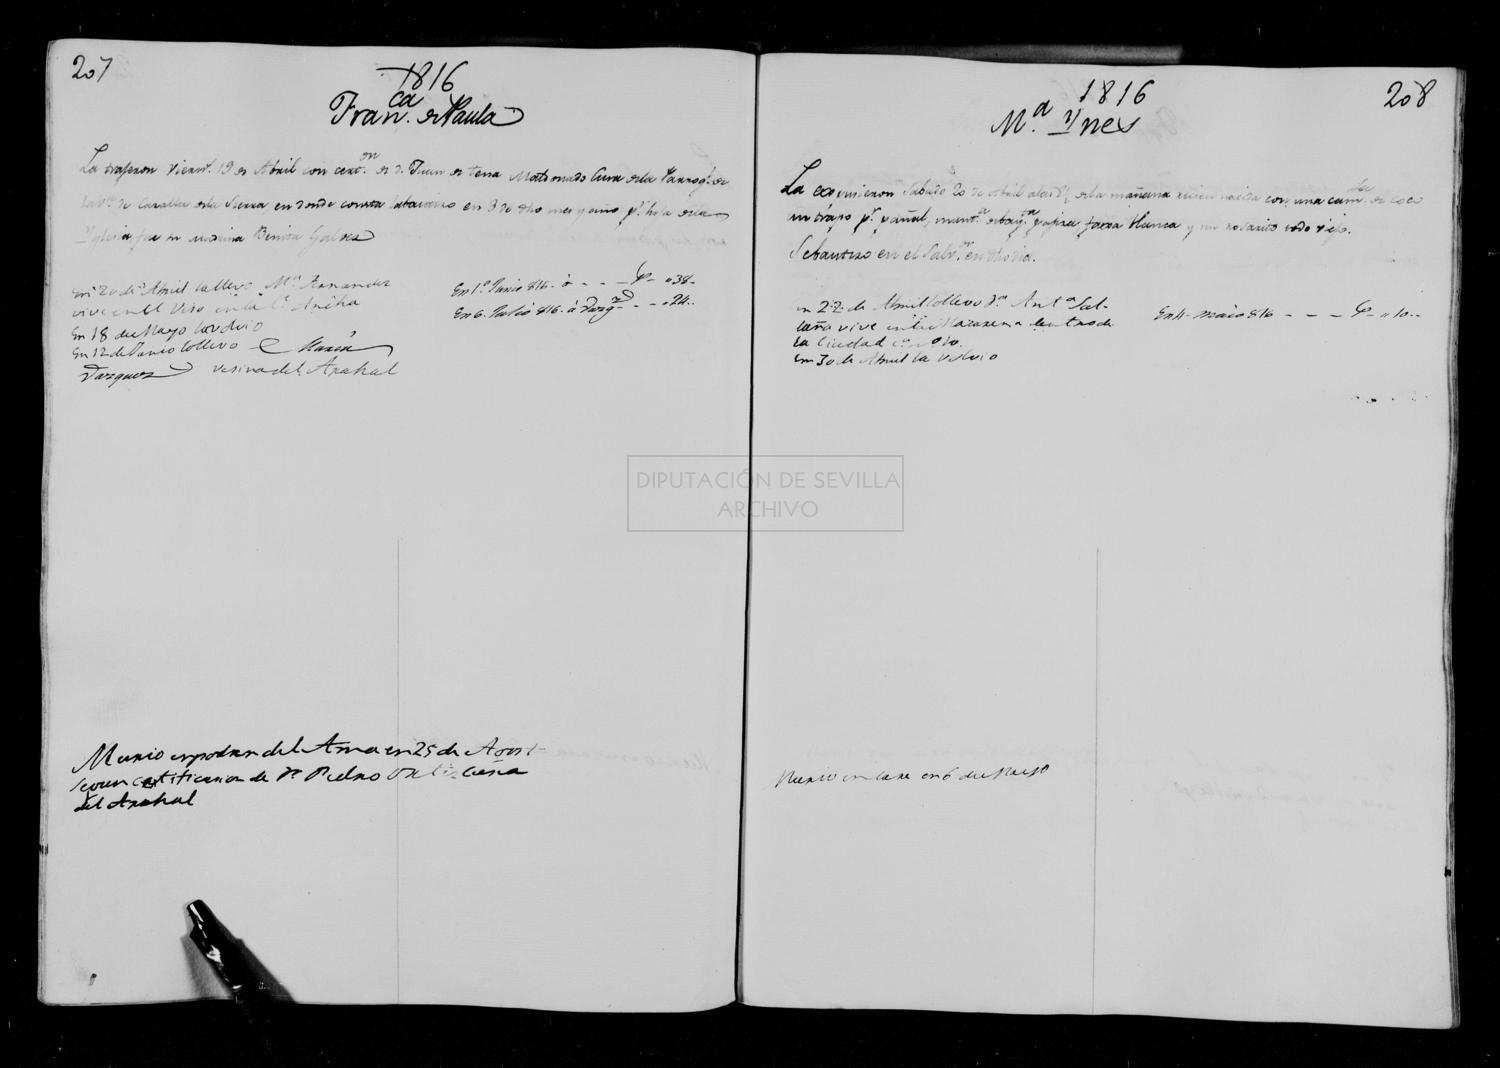 207
1816
Fran.ca de Paula
La trageron Viern.s 19 de Abril con cert.on de D. Juan de tena Maldonado Cura de la Parroq.l de
la V.a de Cazalla de la Sierra en donde consta bautizarse en 3 de dho mes y año p.r hija de la
Yglesia fue su madrina Benita Galvez
en 20 de Abril la llevo M.a Fernandez
vive en el Viso en la C. Ancha
En 18 de Mayo la volvio
En 12 de Junio la llevo Maria
Vazquez vesina del Arahal
En 1.o Junio 816. à - - - 38-
En 6. Julio 816. à Vazq.z - - - 24..
Murio en poder del Ama en 25 de Agost
segun certificacion de D.n Pedro Ortiz cura
del Arahal
1816
208
M.a Ynes
La expusieron Sabado 20 de Abril a las de la mañana recien nacida con una cam.lla de coco
un trapo p.r pañal, mant.a de bay.ta pagiza faxa blanca y un rosarito todo viejo.
Se bautizo en el Salv.or en dho dia.
en 22 de Abril la llevo D.a Ant.a Sal-
daña vive en la Macarena dentro de
la Ciudad
en 30 de Abril la volvio
En 4- maio 816 - - - - 10--
Murio en casa en 6 de Mayo
DIPUTACIÓN DE SEVILLA
ARCHIVO